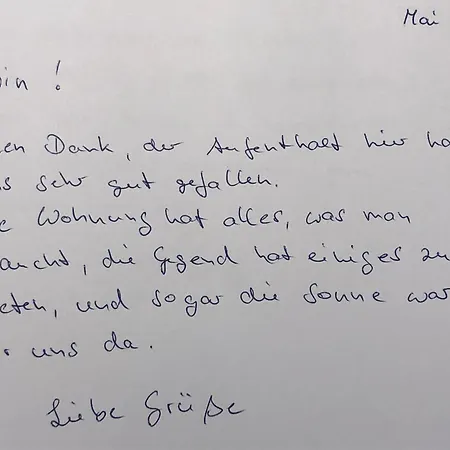 Mai
in !
en Dank, der Aufenthalt hier ha
s sehr gut gefallen.
e Wohnung hat alles, was man
aucht, die Gegend hat einiges zu
eten, und sogar die Sonne war
r uns da.
Liebe Grüße